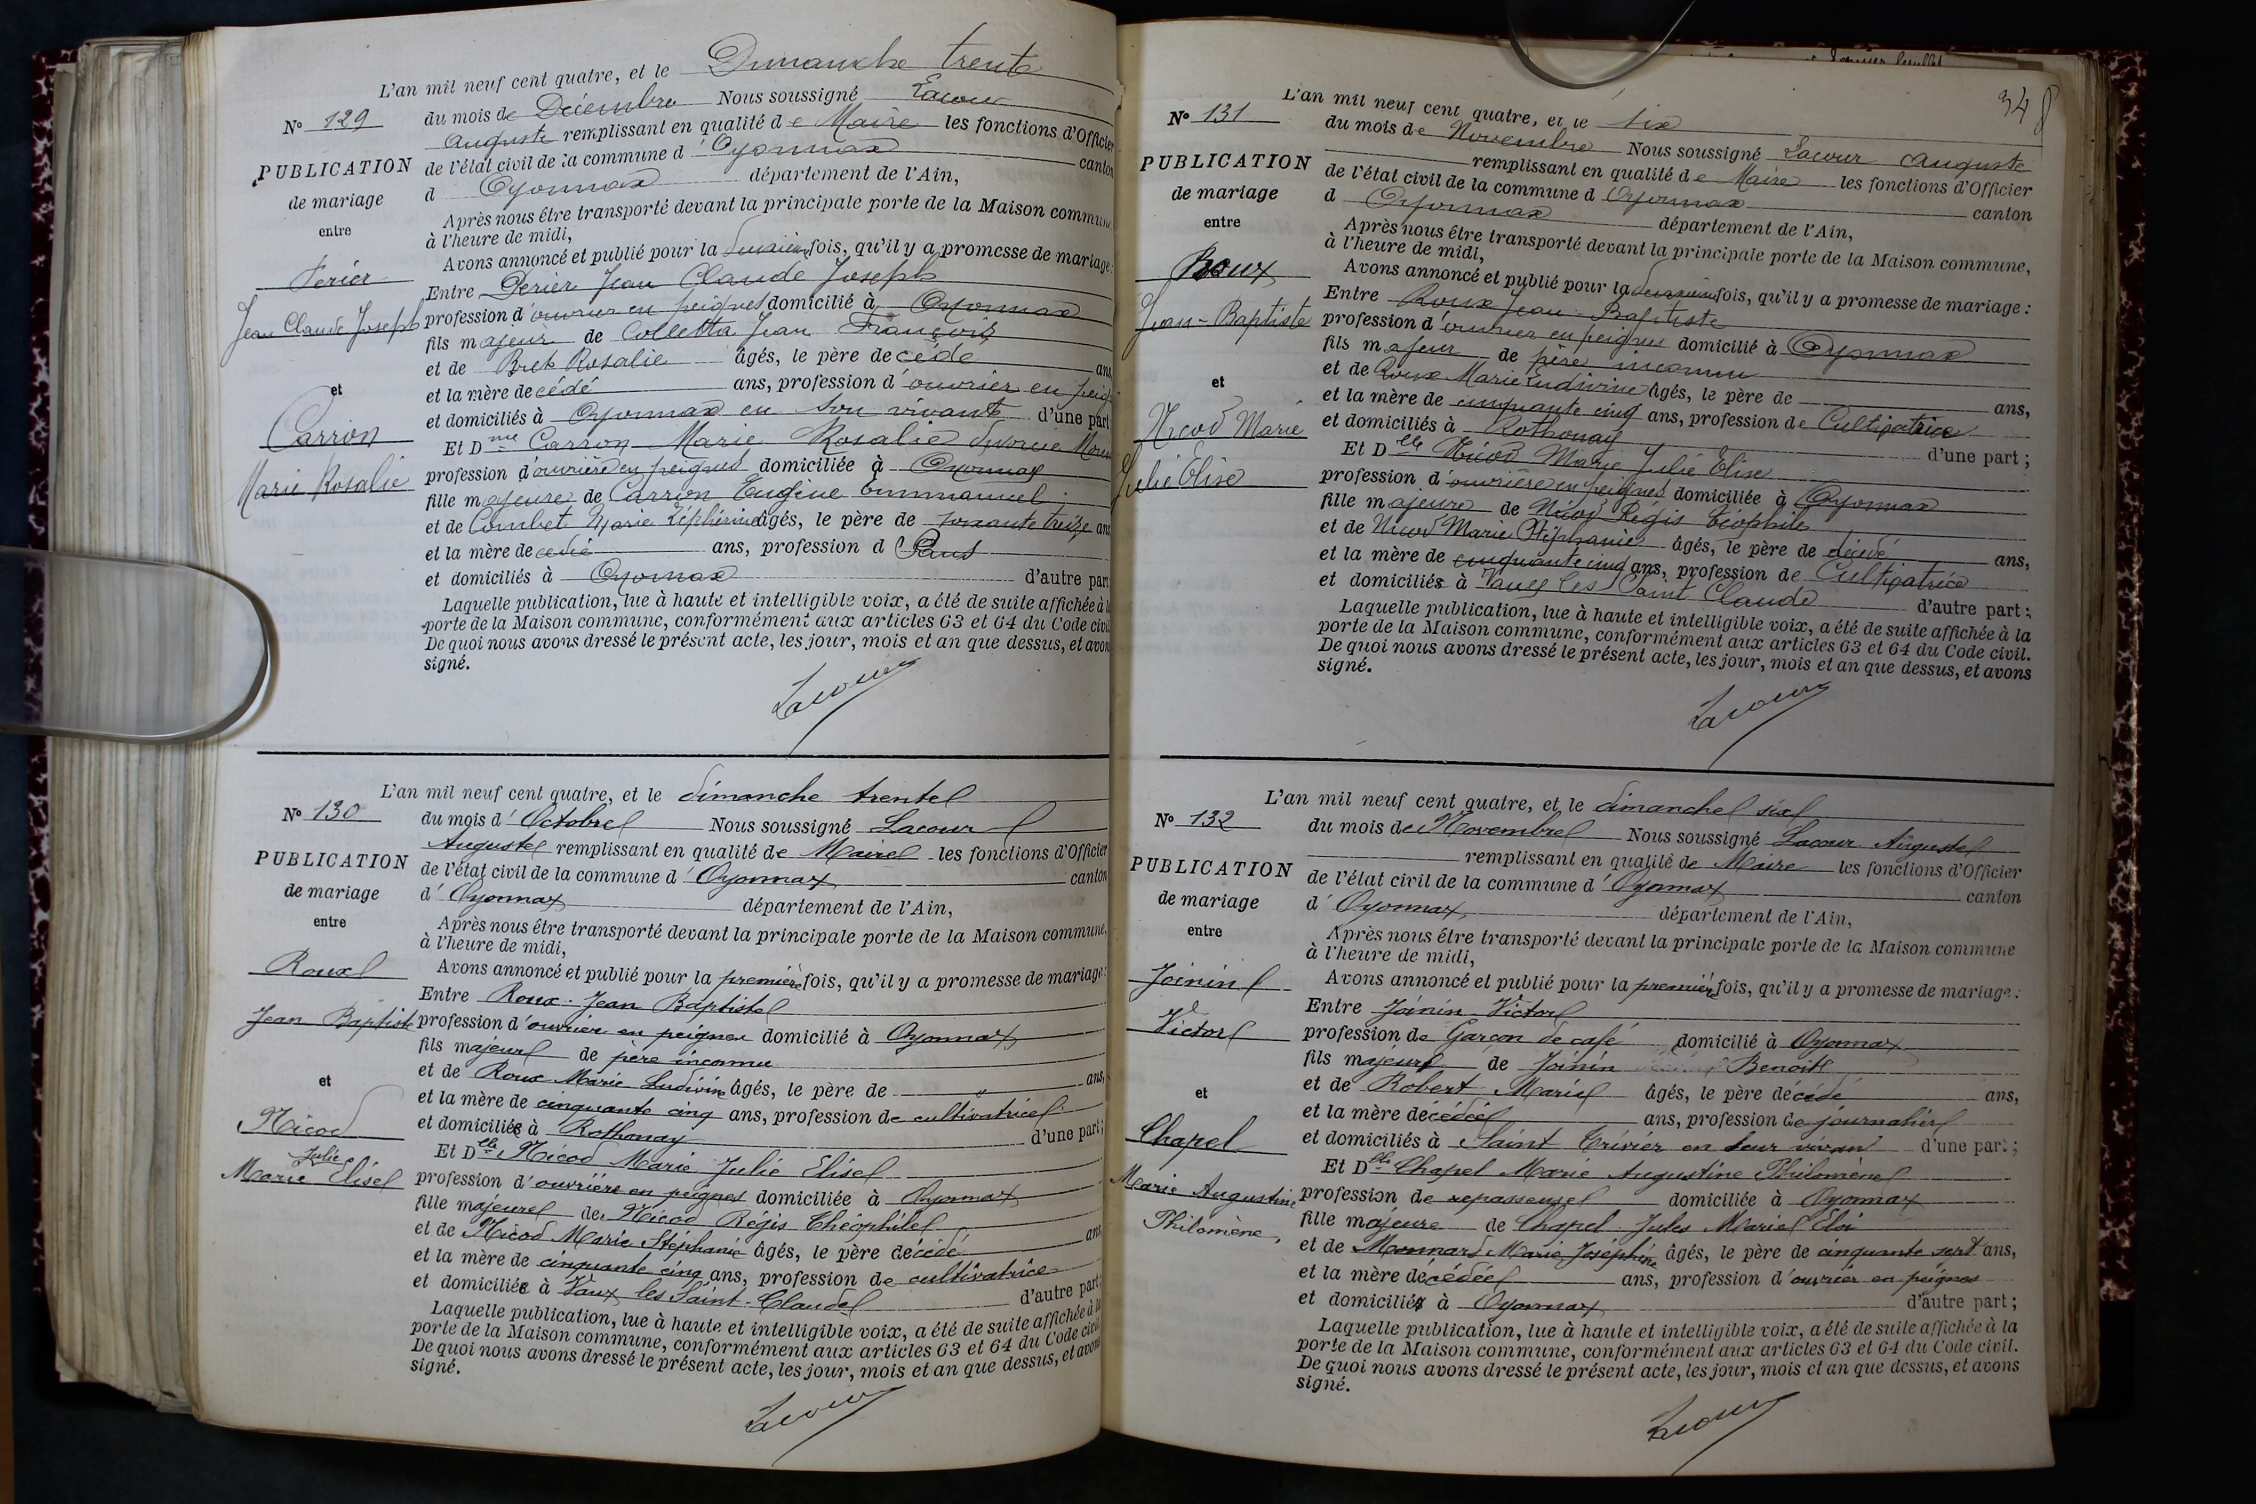 L'an mil neuf cent quatre, et le Dimanche trente
N° 129
du mois de Décembre Nous soussigné Lacour
Auguste remplissant en qualité de Maire les fonctions d'Officier
PUBLICATION
de mariage
entre
de l'état civil de la commune d'Oyonnax canton
d Oyonnax département de l'Ain,
Après nous être transporté devant la principale porte de la Maison commune
à l'heure de midi,
Avons annoncé et publié pour la fois, qu'il y a promesse de mariage:
Jean Claude Joseph
Entre Jean Claude Joseph
profession d'ouvrier en peignes domicilié à Oyonnax
fils majeur de Colletta Jean François
et de Rosalie âgés, le père decédé ans
et
et la mère decédé ans, profession d'ouvrier en peig
et domiciliés à Oyonnax en son vivant d'une part
Carron
Marie Rosalie
Et Dme Carron Marie Rosalie divorcée
profession d'ouvrière en peignes domiciliée à Oyonnax
fille majeure de Carron Eugène Emmanuel
et de Combet Marie Zéphirine âgés, le père de soixante treize ans
et la mère decédé ans, profession d Sans
et domiciliés à Oyonnax d'autre part
Laquelle publication, lue à haute et intelligible voix, a été de suite affichée à la
porte de la Maison commune, conformément aux articles 63 et 64 du Code civil
De quoi nous avons dressé le présent acte, les jour, mois et an que dessus, et avons
signé.
Lacour
L'an mil neuf cent quatre, et le dimanche trente
N° 130
du mois d'Octobre Nous soussigné Lacour
Auguste remplissant en qualité de Maire les fonctions d'Officier
PUBLICATION
de mariage
entre
de l'état civil de la commune d'Oyonnax canton
d'Oyonnax département de l'Ain,
Après nous être transporté devant la principale porte de la Maison commune,
à l'heure de midi,
Avons annoncé et publié pour la première fois, qu'il y a promesse de mariage:
Roux
Jean Baptiste
Entre Roux Jean Baptiste
profession d'ouvrier en peignes domicilié à Oyonnax
fils majeur de père inconnu
et de Roux Marie Ludivine âgés, le père de " ans,
et
et la mère de cinquante cinq ans, profession de cultivatrice
et domiciliée à Rothonay d'une part;
Nicod
Julie
Marie Elise
Et Dlle Nicod Marie Julie Elise
profession d'ouvrière en peignes domiciliée à Oyonnax
fille majeure de Nicod Régis Théophile
et de Nicod Marie Stéphanie âgés, le père décédé ans
et la mère de cinquante cinq ans, profession de cultivatrice
et domiciliée à Vaux les Saint-Claude d'autre part
Laquelle publication, lue à haute et intelligible voix, a été de suite affichée à la
porte de la Maison commune, conformément aux articles 63 et 64 du Code civil
De quoi nous avons dressé le présent acte, les jour, mois et an que dessus, et avons
signé.
Lacour
348
L'an mil neuf cent quatre, et le six
N° 131
du mois de Novembre Nous soussigné Lacour Auguste
remplissant en qualité de Maire les fonctions d'Officier
PUBLICATION
de mariage
entre
de l'état civil de la commune d Oyonnax canton
d Oyonnax département de l'Ain,
Après nous être transporté devant la principale porte de la Maison commune,
à l'heure de midi,
Avons annoncé et publié pour la fois, qu'il y a promesse de mariage:
Roux
Jean-Baptiste
Entre Roux Jean-Baptiste
profession d'ouvrier en peignes domicilié à Oyonnax
fils majeur de père inconnu
et de Roux Marie Ludivine âgés, le père de ans,
et
et la mère de cinquante cinq ans, profession de Cultivatrice
et domiciliés à Rothonay d'une part;
Nicod Marie
Julie Elise
Et Dlle Nicod Marie Julie Elise
profession d'ouvrière en peignes domiciliée à Oyonnax
fille majeure de Nicod Régis Téophile
et de Nicod Marie Stéphanie âgés, le père de décédé ans,
et la mère de cinquante cinq ans, profession de Cultivatrice
et domiciliés à Vaux les Saint Claude d'autre part:
Laquelle publication, lue à haute et intelligible voix, a été de suite affichée à la
porte de la Maison commune, conformément aux articles 63 et 64 du Code civil.
De quoi nous avons dressé le présent acte, les jour, mois et an que dessus, et avons
signé.
Lacour
L'an mil neuf cent quatre, et le dimanche six
N° 132
du mois de Novembre Nous soussigné Lacour Auguste
remplissant en qualité de Maire les fonctions d'Officier
PUBLICATION
de mariage
entre
de l'état civil de la commune d'Oyonnax canton
d'Oyonnax département de l'Ain,
Après nous être transporté devant la principale porte de la Maison commune
à l'heure de midi,
Avons annoncé et publié pour la première fois, qu'il y a promesse de mariage:
Joinin
Victor
Entre Joinin Victor
profession de Garçon de café domicilié à Oyonnax
fils majeur de Joinin Benoit
et de Robert Marie âgés, le père décédé ans,
et
et la mère décédée ans, profession de journalier
et domiciliés à Saint Trivier en leur vivant d'une part;
Chapel
Marie Augustine
Philomène,
Et Dlle Chapel Marie Augustine Philomène
profession de repasseuse domiciliée à Oyonnax
fille majeure de Chapel Jules Marie Eloi
et de Monnard Marie Joséphine âgés, le père de cinquante sept ans,
et la mère décédée ans, profession d'ouvrier en peignes
et domiciliés à Oyonnax d'autre part;
Laquelle publication, lue à haute et intelligible voix, a été de suite affichée à la
porte de la Maison commune, conformément aux articles 63 et 64 du Code civil.
De quoi nous avons dressé le présent acte, les jour, mois et an que dessus, et avons
signé.
Lacour